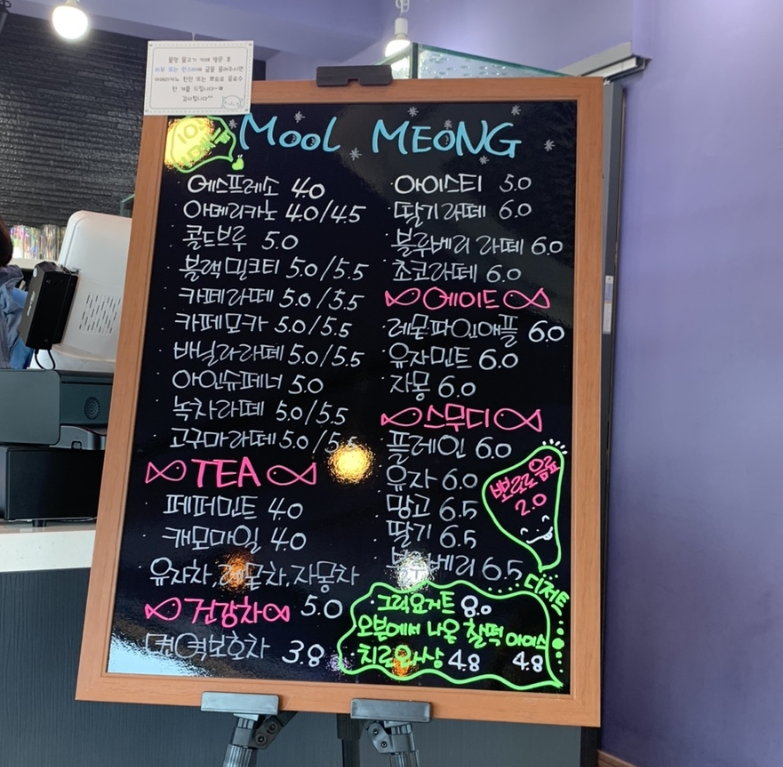 물멍 물고기 카페 방문 후
한 개를 드립니다~*
감사합니다^^
MOOL MEONG
에스프레소 4.0
아메리카노 4.0/4.5
콜드브루 5.0
블랙밀크티 5.0/5.5
카페라떼 5.0/5.5
카페모카 5.0/5.5
바닐라라떼 5.0/5.5
아인슈페너 5.0
녹차라떼 5.0/5.5
고구마라떼 5.0/5.5
TEA
페퍼민트 4.0
캐모마일 4.0
유자차, 레몬차, 자몽차
5.0
건강차
면역보호차 3.8
아이스티 5.0
딸기라떼 6.0
블루베리 라떼 6.0
초코라떼 6.0
에이드
레몬파인애플 6.0
유자민트 6.0
자몽 6.0
스무디
플레인 6.0
유자 6.0
망고 6.5
딸기 6.5
블루베리 6.5
뽀로로음료
2.0
디저트
그릭요거트 8.0
오븐에서 나온 찰떡 아이스
4.8 4.8